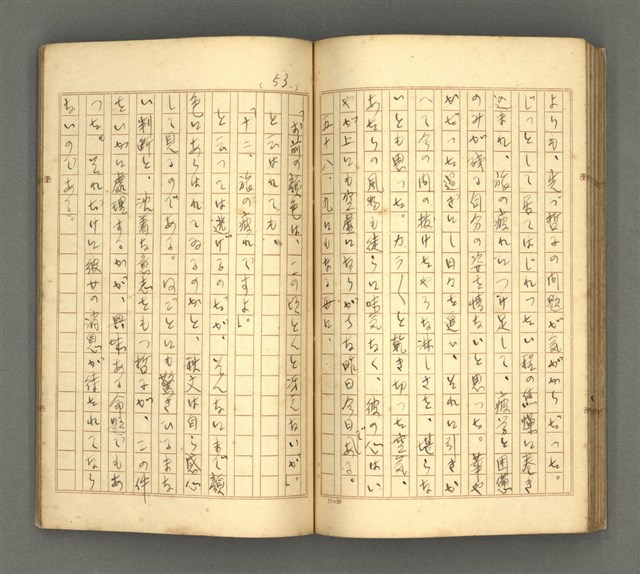 よりも、実は哲子の問題が気がかりだった。
じっとして居てはじれったい程の焦燥に巻き
込まれ、旅の疲れにつけ足して、疲労と困憊
のみが残る自分の姿を情ないと思った。華や
かだった過ぎにし日々を追い、それに引きか
へて今の間の抜けたやうな淋しさを、堪らな
いとも思った。カラ〳〵と乾き切った空気、
あたりの風物も徒らに味気なく、彼の心はい
やが上にも空虚にならがちな昨日今日である。
五十八、九にもなる女に、
(53.)
「お前の顔色は、この頃とんと冴えないが」
と云はれても、
「十二、旅の疲れですよ」
と云っては逃げるのだが、そんなにまで顔
色にあらはれてゐるのかと、秋文は自ら感心
して見るのである。何ごとにも驚きひるまな
い判断と、沈着な意志をもつ哲子が、この件
をいかに処理するかが、興味ある命題でもあ
った。それだけに彼女の消息が待たれてなら
ないのである。